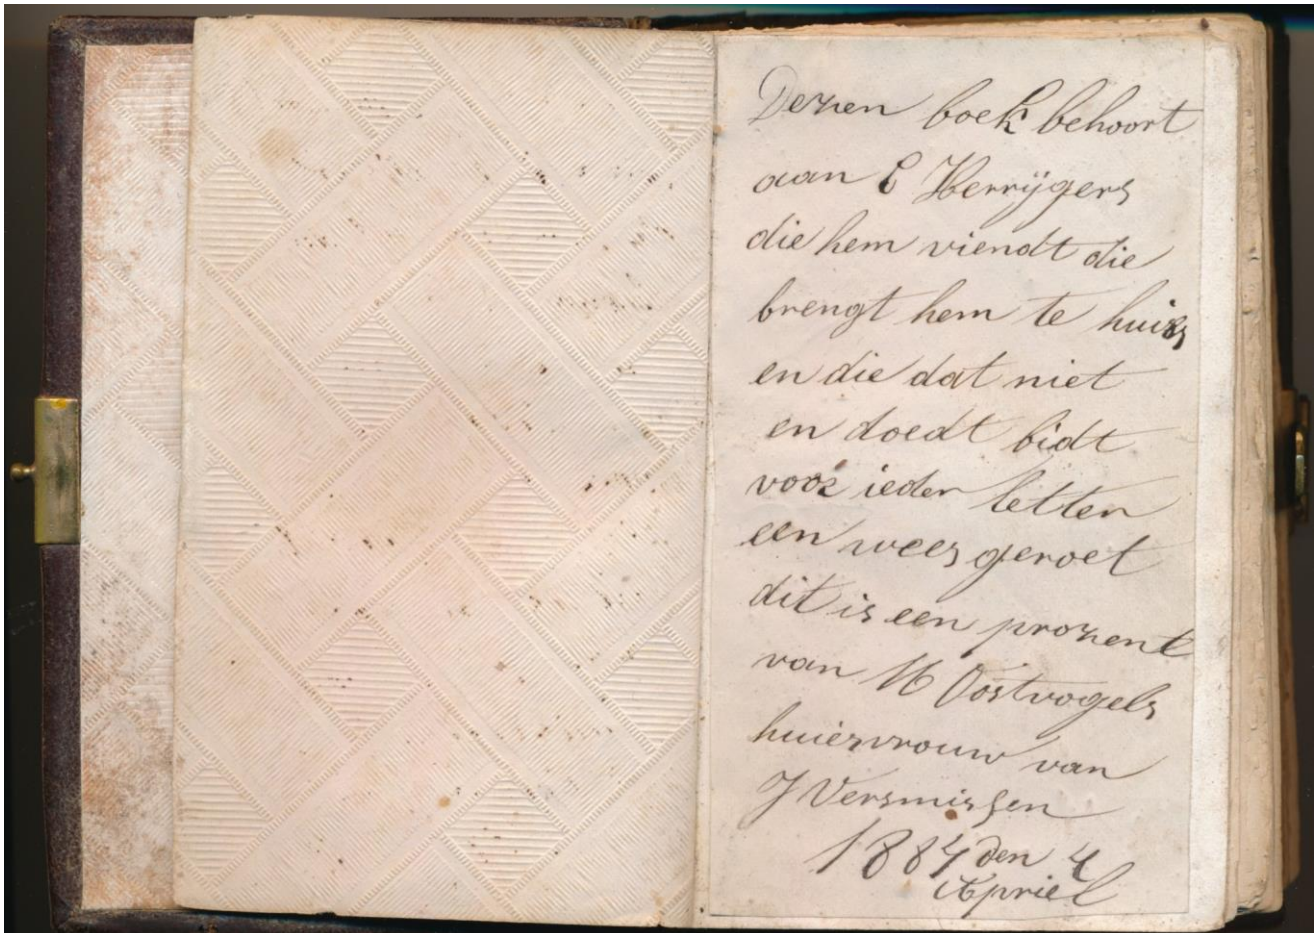 Dezen boek behoort
aan C Herrÿgers
die hem viendt die
brengt hem te huis
en die dat niet
en doedt bidt
voor ieder letter
een wees geroet
dit is een prozent
van M Oostvogels
huiezvrouw van
J Versmissen
1884 den 4
Apriel